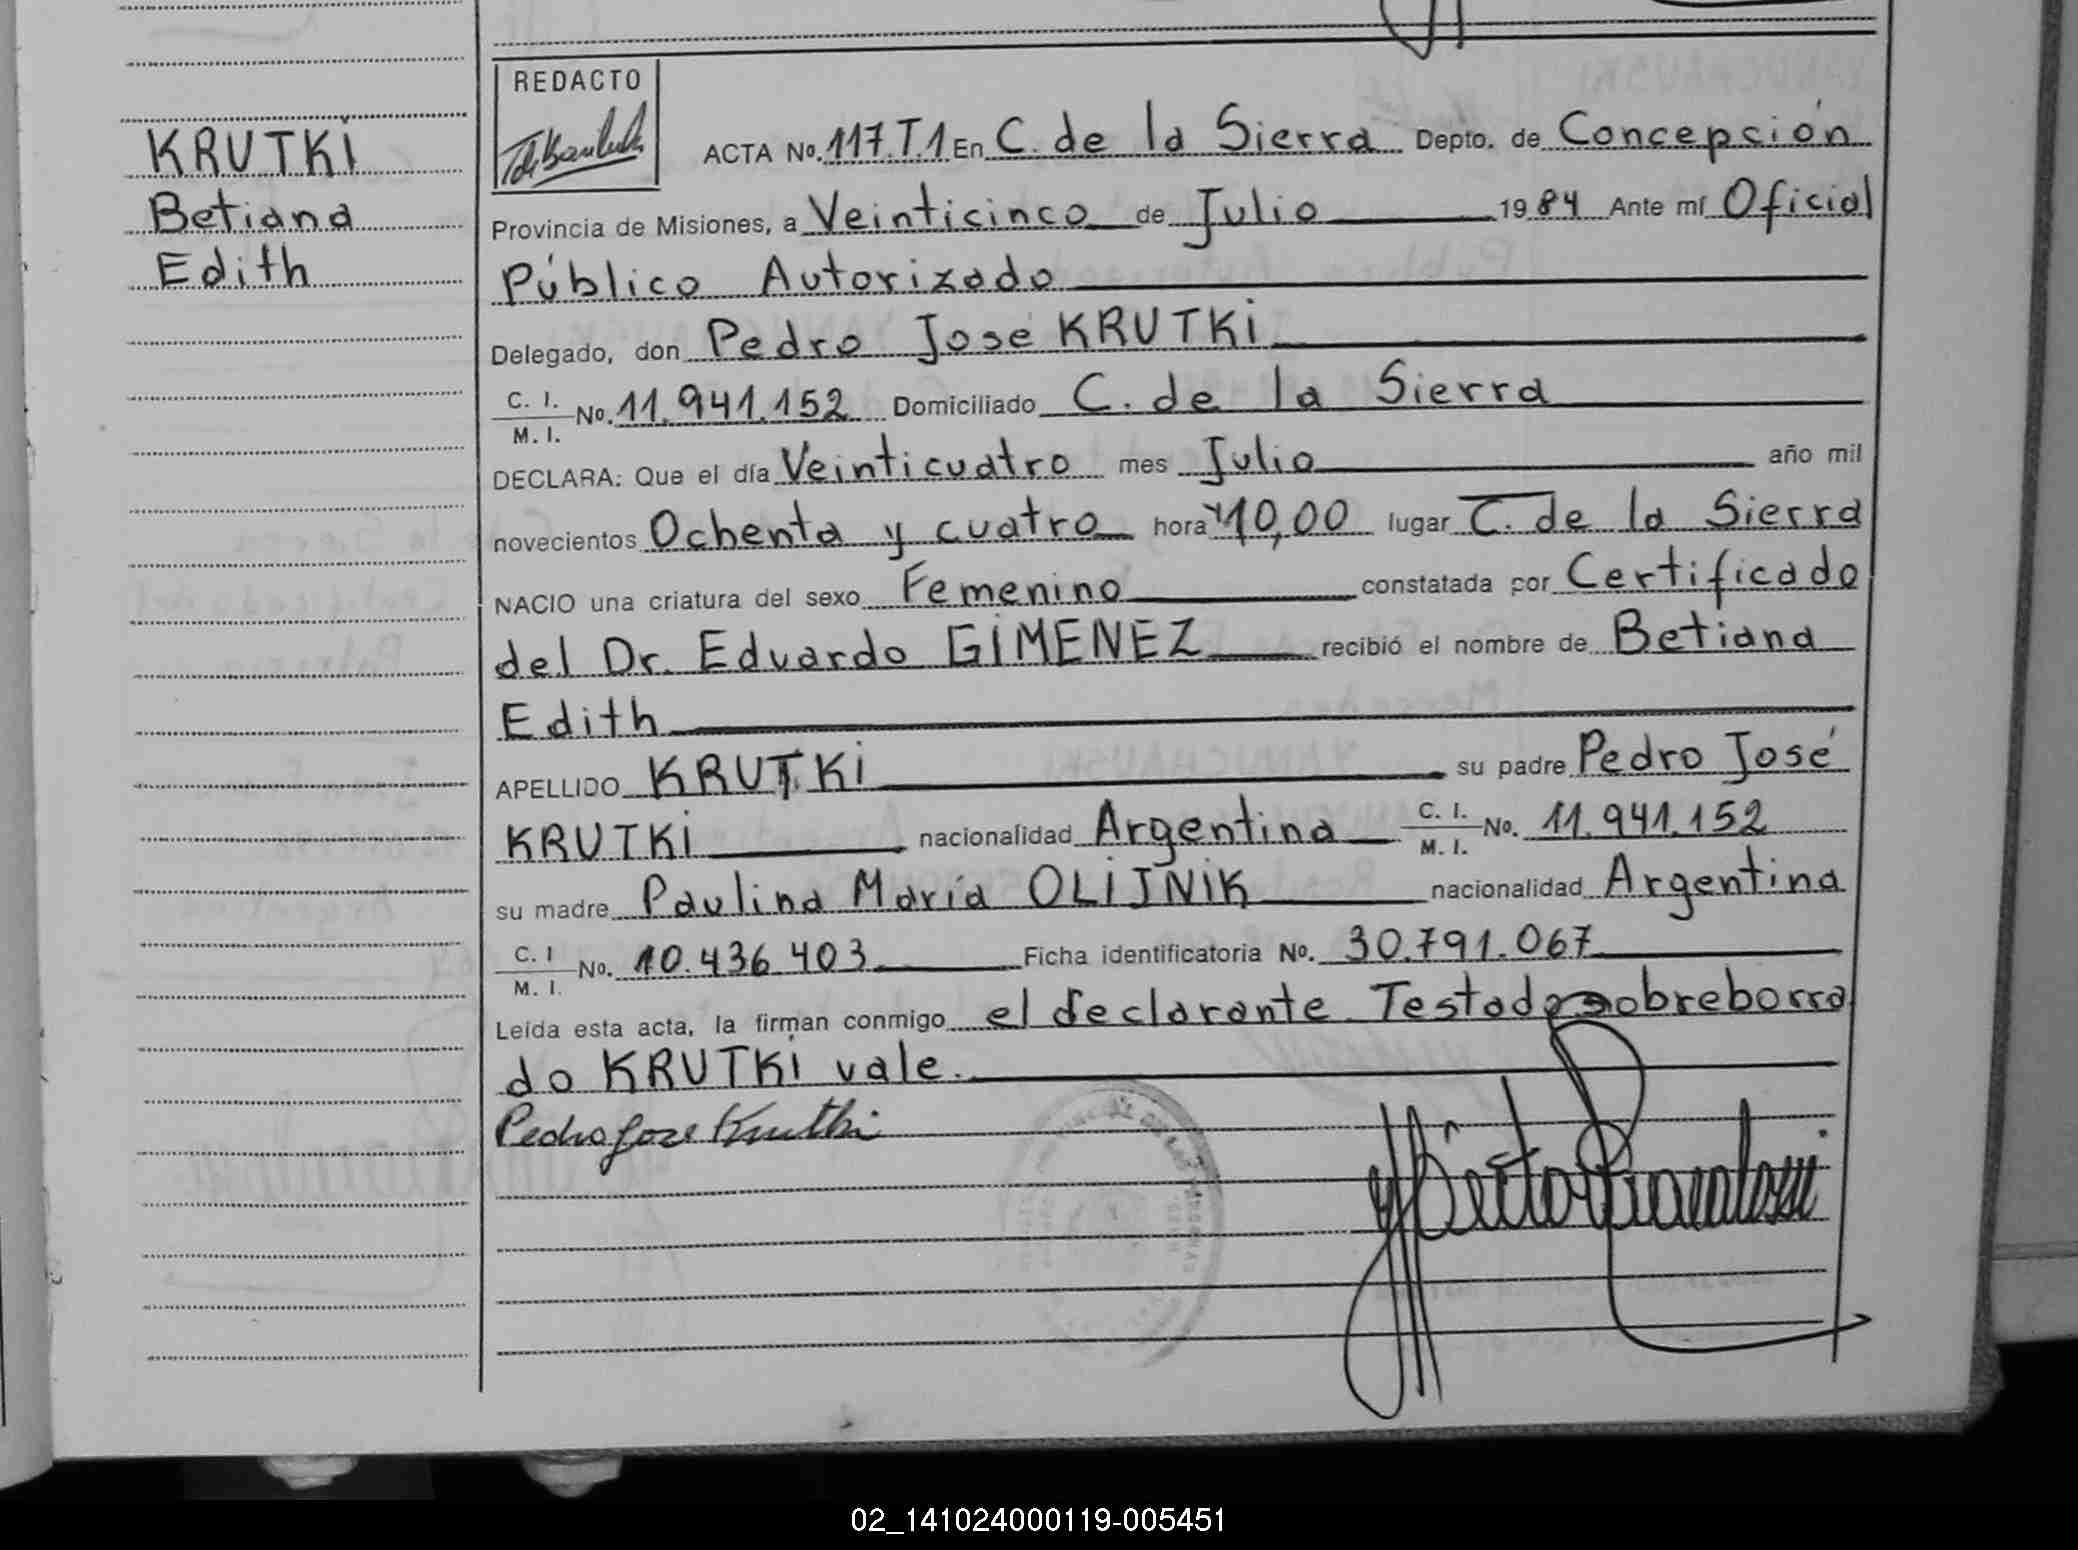 KRUTKI
Betiana
Edith
REDACTO
ACTA No. 117.T.1 En C. de la Sierra Depto. de Concepsión
Provincia de Misiones, a Veinticinco de Julio 1984 Ante mí Oficial
Público Autorizado
Delegado, don Pedro Jose KRUTKI
C. I.
M. I. No. 11.941.152 Domiciliado C. de la Sierra
DECLARA: Que el día Veinticuatro mes Julio año mil
novecientos Ochenta y cuatro hora 10,00 lugar C. de la Sierra
NACIO una criatura del sexo Femenino constatada por Certificado
del Dr. Eduardo GIMENEZ recibió el nombre de Betiana
Edith
APELLIDO KRUTKI su padre Pedro José
KRUTKI nacionalidad Argentina C. I. M. I. No. 11.941.152
su madre Paulina María OLIJNIK nacionalidad Argentina
C. I
M. I. No. 10.436.403 Ficha identificatoria No. 30.791.067
Leída esta acta, la firman conmigo el declarante. Testado sobreborra
do KRUTKI vale.
Pedro Jose Krutki
02_141024000119-005451